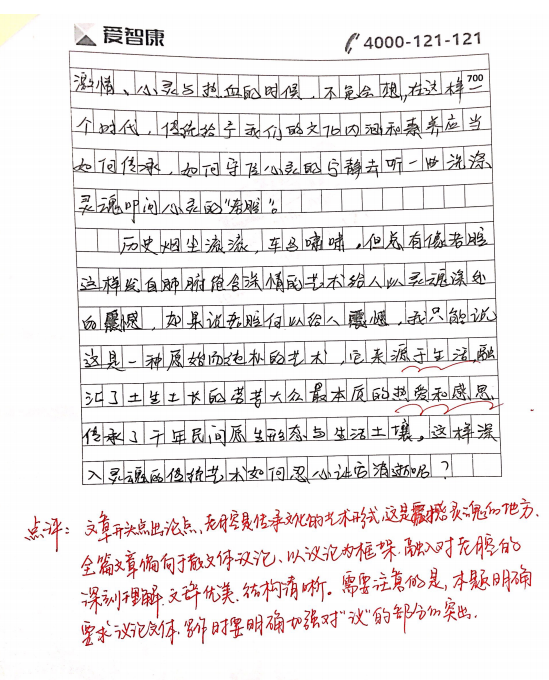 爱智康
4000-121-121
激情、心灵与热血的时候,不免会想,在这样一
700
个时代,传统给予我们的文化内涵和素养应当
如何传承,如何守住心灵的宁静去听一曲洗涤
灵魂叩问心灵的“老腔”。
历史烟尘流流,车马啸啸,但总有像老腔
这样发自肺腑饱含深情的艺术给人以灵魂深处
的震憾,如果说老腔何以给人震憾,我只能说
这是一种原始而纯朴的艺术,它来源于生活,融
汇了土生土长的劳苦大众最本质的热爱和感思,
传承了千年民间原生形态与生活土壤,这样深
入灵魂的传统艺术如何忍心让它消逝呢?
点评:文章开头点出论点,老腔究竟是传承文化的艺术形式,这是震撼灵魂的地方.
全篇文章偏向于散文体议论、以议论为框架.融入对老腔的
深刻理解.文辞优美.结构清晰。需要注意的是,本题明确
要求议论文体.写作时要明确加强对“议”的部分的突出.